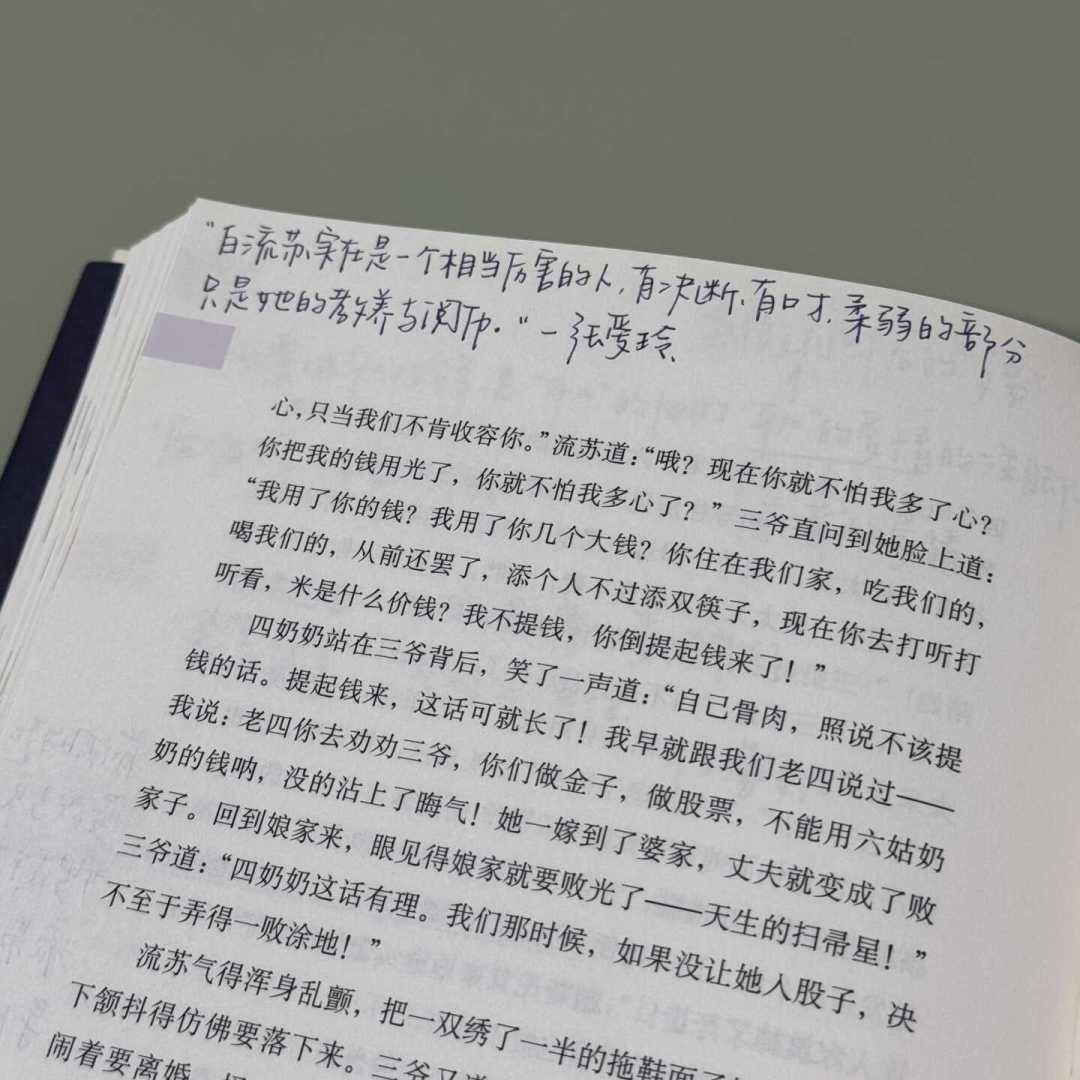 “白流苏实在是一个相当厉害的人,有决断、有口才,柔弱的部分
只是她的教养与阅历。”—张爱玲
心,只当我们不肯收容你。”流苏道:“哦?现在你就不怕我多了心?
你把我的钱用光了,你就不怕我多心了?”三爷直问到她脸上道:
“我用了你的钱?我用了你几个大钱?你住在我们家,吃我们的,
喝我们的,从前还罢了,添个人不过添双筷子,现在你去打听打
听看,米是什么价钱?我不提钱,你倒提起钱来了!”
四奶奶站在三爷背后,笑了一声道:“自己骨肉,照说不该提
钱的话。提起钱来,这话可就长了!我早就跟我们老四说过——
我说:老四你去劝劝三爷,你们做金子,做股票,不能用六姑奶
奶的钱呐,没的沾上了晦气!她一嫁到了婆家,丈夫就变成了败
家子。回到娘家来,眼见得娘家就要败光了——天生的扫帚星!”
三爷道:“四奶奶这话有理。我们那时候,如果没让她入股子,决
不至于弄得一败涂地!”
流苏气得浑身乱颤,把一双绣了一半的拖鞋面子
下颔抖得仿佛要落下来。三爷又道
闹着要离婚